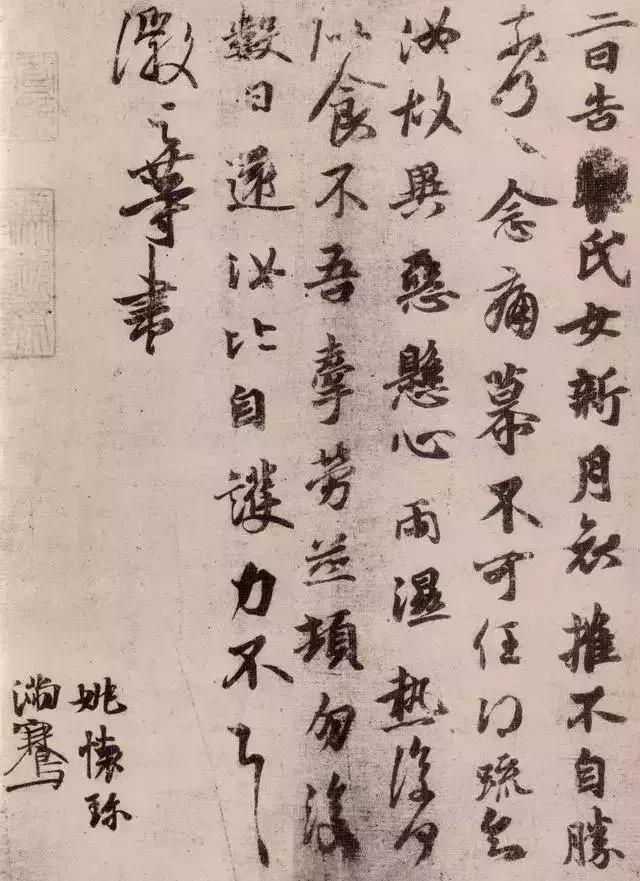 二日告氏女新月哀摧不自勝
奈何〻念痛慕不可任得疏知
汝故異惡懸心雨濕熱復何
似食不吾牽勞並頓勿復
數日還汝比自護力不一一
徽之等書
姚懷珍
滿騫